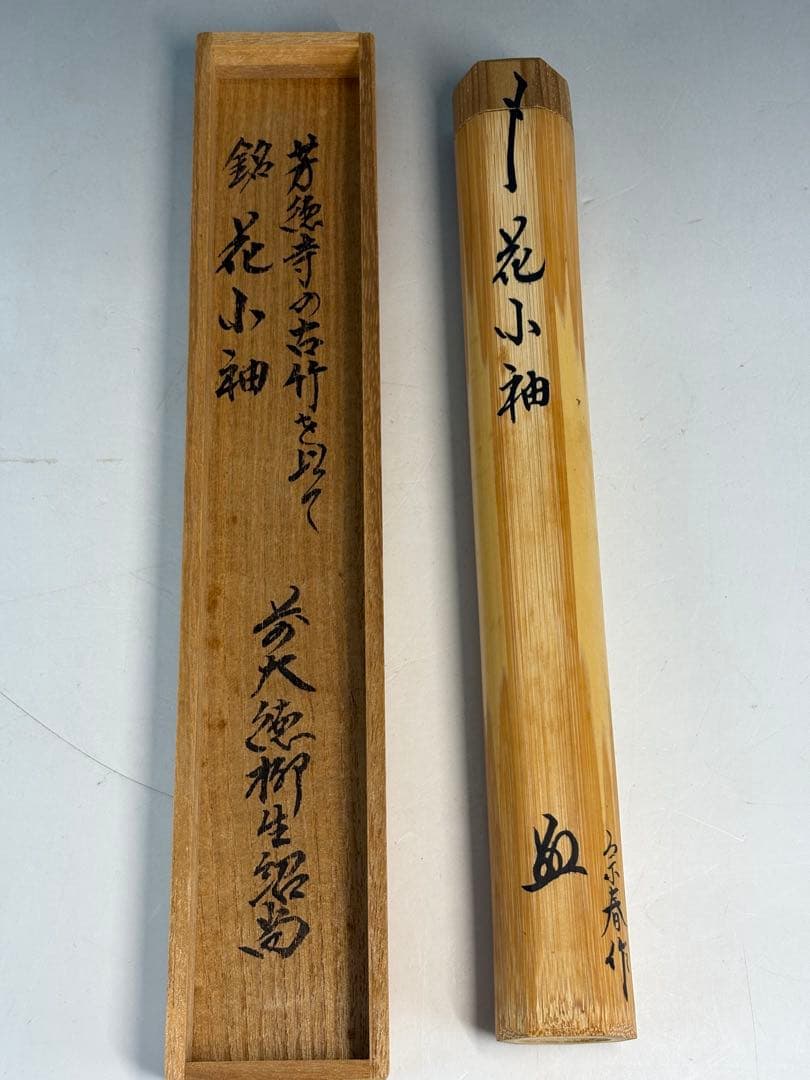 芳徳寺の古竹を以て
銘 花小袖
前大徳柳生紹尚
花小袖
宗春作